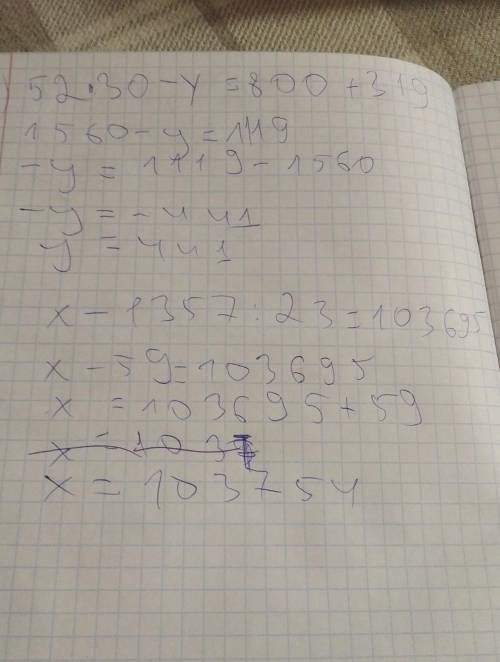 52·30-y=800+319
1560-y=1119
-y=1119-1560
-y=-441
y=441
x-1357:23=103695
x-59=103695
x=103695+59
x=103
x=103754